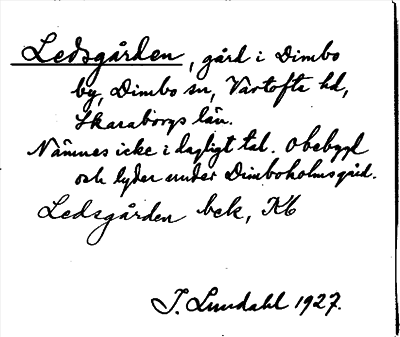 Ledsgården, gård i Dimbo
by, Dimbo sn, Vartofta hd,
Skaraborgs län.
Nämnes icke i dagligt tal. Obebyggd
och lyder under Dimboholmsgård.
Ledsgården bek, Kb
I. Lundahl 1927.